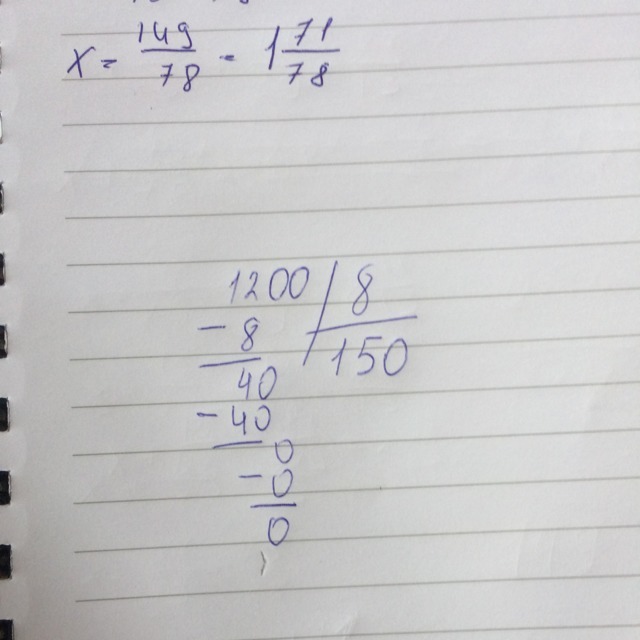 x = 149/78 = 1 71/78
1200 / 8
- 8 150
40
- 40
0
- 0
0